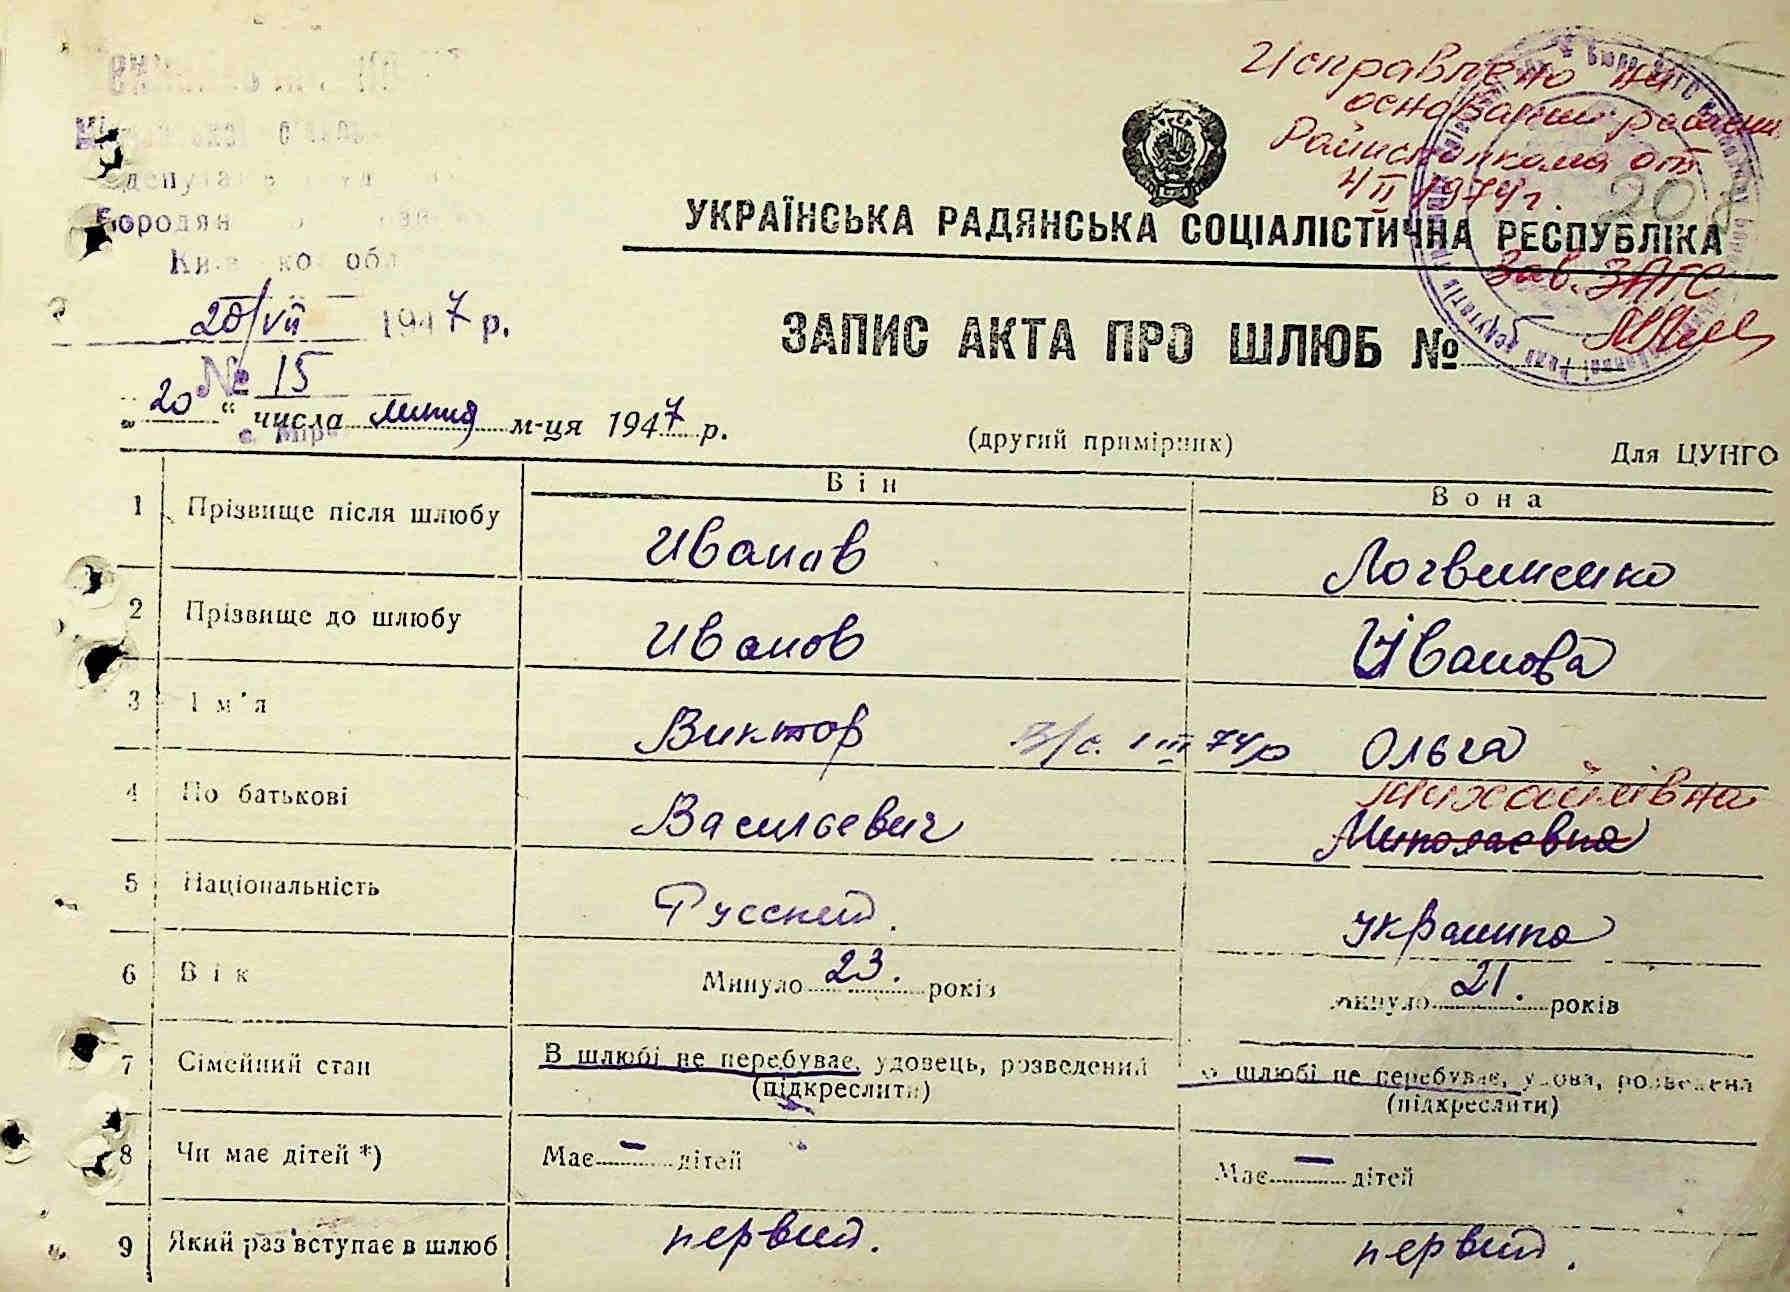 Исправлено на
основании решения
Райисполкома от
4 II 1974 г.
208
Зав. ЗАГС
УКРАЇНСЬКА РАДЯНСЬКА СОЦІАЛІСТИЧНА РЕСПУБЛІКА
Бородян
20/VII 1947 р.
№ 15
ЗАПИС АКТА ПРО ШЛЮБ №
"20" числа липня м-ця 1947 р.
(другий примірник)
Для ЦУНГО
Він Вона
1 Прізвище після шлюбу Иванов Логвиненко
2 Прізвище до шлюбу Иванов Иванова
3 Ім'я Виктор В/с. 1 III 74р Ольга
Михайлівна
4 По батькові Васильевич Миколаевна
5 Національність Русский. Украинка
6 Вік Минуло 23. років Минуло 21. років
7 Сімейний стан В шлюбі не перебуває, удовець, розведений В шлюбі не перебуває, удова, розведена
(підкреслити) (підкреслити)
8 Чи має дітей *) Має – дітей Має – дітей
9 Який раз вступає в шлюб первий. первий.